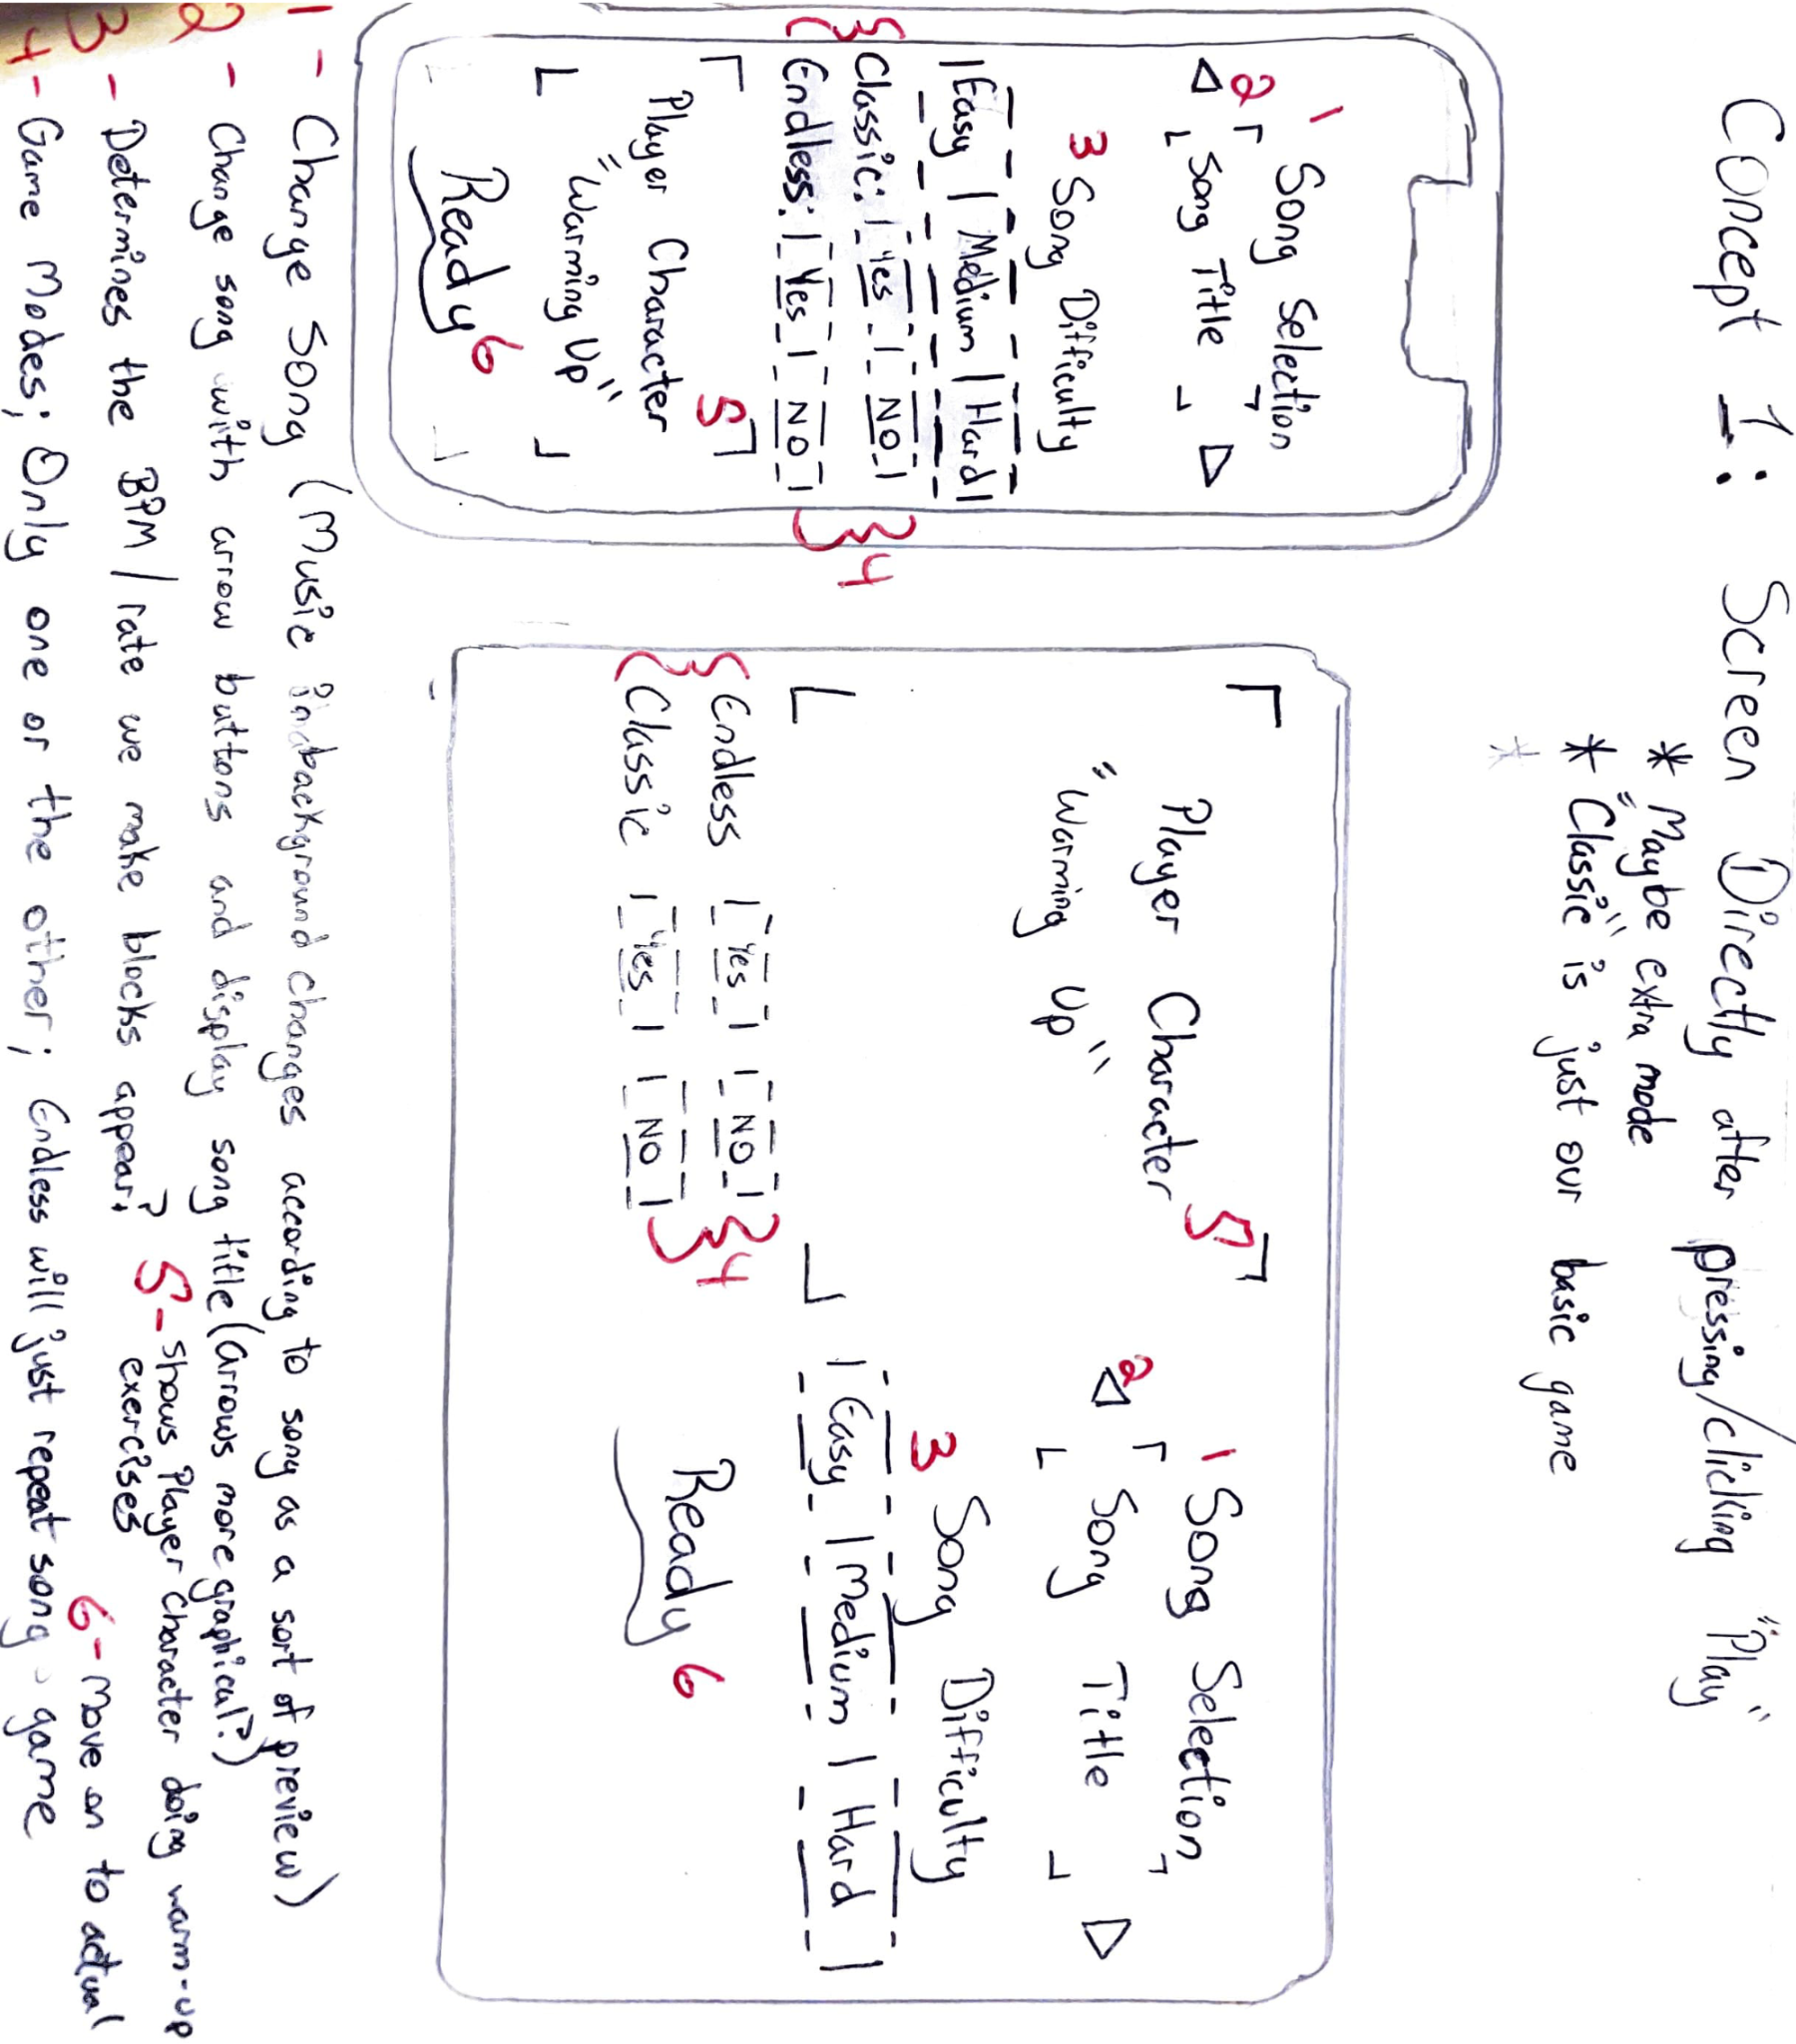 Concept 1: Screen Directly after pressing/clicking "Play"
* Maybe extra mode
* "Classic" is just our basic game
*
1 Song Selection
2 Song Title
3 Song Difficulty
| Easy | Medium | Hard |
Classic: | Yes | | NO |
Endless: | Yes | | NO |
4
5
Player Character
"Warming Up"
Ready 6
Player Character 5
"Warming Up"
Endless | Yes | | NO |
Classic | Yes | | NO |
4
1 Song Selection
2 Song Title
3 Song Difficulty
| Easy | Medium | Hard |
Ready 6
1 - Change Song (Music in background changes according to song as a sort of preview)
2 - Change song with arrow buttons and display song title (arrows more graphical?)
3 - Determines the BPM / rate we make blocks appear?
4 - Game Modes; Only one or the other; Endless will just repeat song
5 - Shows Player Character doing warm-up
exercises
6 - Move on to actual
game